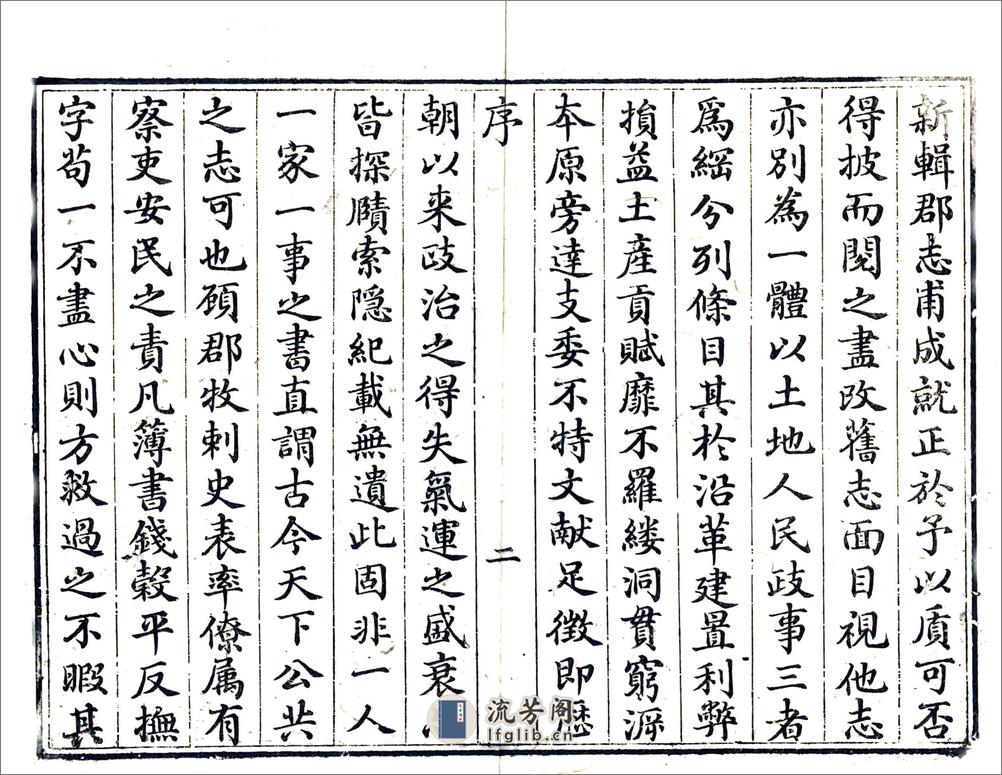 新輯郡志甫成就正於予以質可否
得披而閱之盡改舊志面目視他志
亦別為一體以土地人民政事三者
爲綱分列條目其於沿革建置利弊
損益土產貢賦靡不羅縷洞貫窮源
本原旁達支委不特文献足徵即歷
序
二
朝以来政治之得失氣運之盛衰
皆探賾索隠紀載無遺此固非一人
一家一事之書直謂古今天下公共
之志可也顧郡牧刺史表率僚属有
察吏安民之責凡簿書錢穀平反撫
字苟一不盡心則方救過之不暇其
流芳阁
lfglib.cn